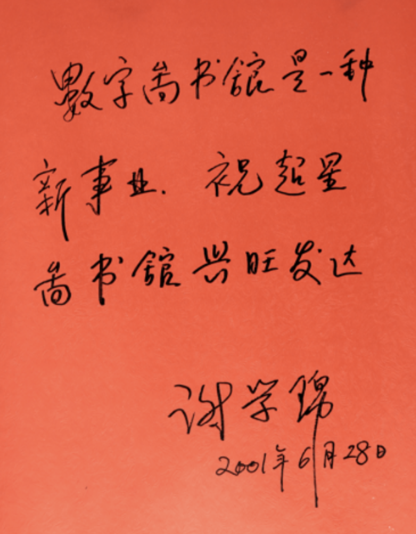 數字啚书舘是一种
新事业.祝超星
啚书舘兴旺发达
谢学锦
2001年6月28日